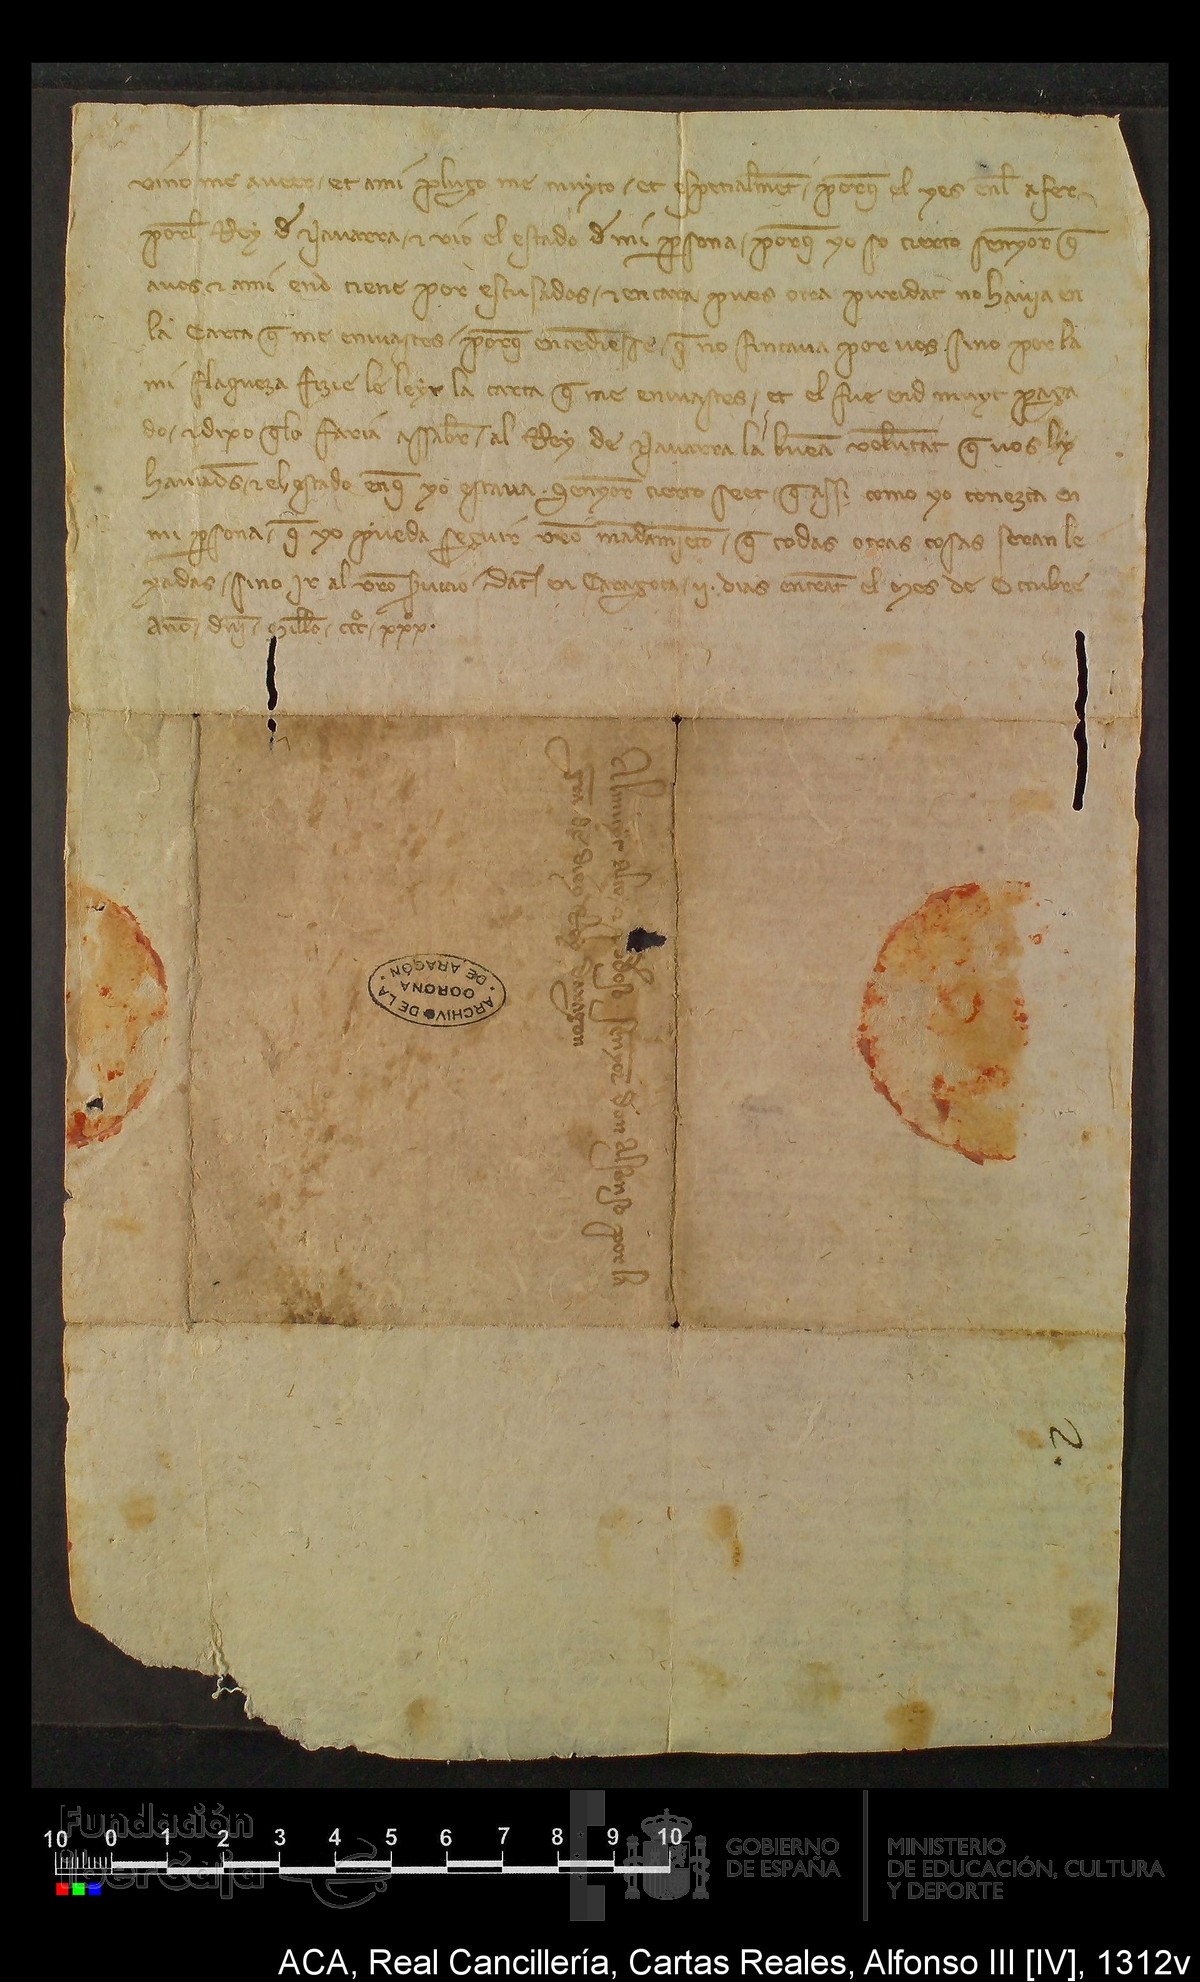 vino me aveer / et ami plugo me muyto / et espetialmēt / porq̄ el yes enl afer
porl Rey đ Navarra / ⁊ vio el estado đ mi ꝑsona / porq̄ yo so cierto senyor q̄
avos ⁊ ami end tiene por escusados / ⁊ encara pues otra puridat no havia en
la Carta q̄ me enviastes / porq̄ entēdiesse / q̄ no fincava por vos sino por la
mi flaqueza fizie le leyr la carta q̄ me enviastes / et el fue end muyt paga
do / ⁊ dixo q̄lo faria assabr̄ / al Rey de Navarra la buēa volūtat q̄ vos hy
haviads / ⁊ el estado enq̄ yo estava · Senyor cierto seet / q̄ assi como yo conezca en
mi ꝑsona / q̄ yo pueda seguir vr̄o mādamiēto / q̄ todas otras cosas seran le
xadas / sino Ir al vr̄o ſvicio Dat̄ en Caragoca / ij · dias entrāt el mes de Octubre
Ano / dn̄i / Mill̄o / ccc̊ / xxx̊ ·
Al muyt alto ⁊ poderoso senyor Don Alfonso por la
gr̄a de dios Rey Daragon
ARCHIVO DE LA
CORONA
DE ARAGÓN
Fundación
IberCaja
10 0 1 2 3 4 5 6 7 8 9 10
GOBIERNO
DE ESPAÑA
MINISTERIO
DE EDUCACIÓN, CULTURA
Y DEPORTE
ACA, Real Cancillería, Cartas Reales, Alfonso III [IV], 1312v